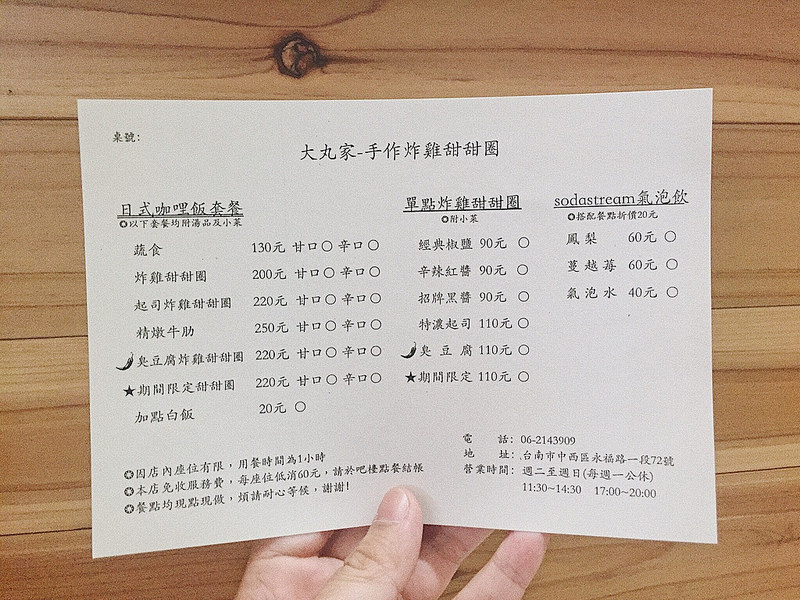 桌號:
大丸家-手作炸雞甜甜圈
日式咖哩飯套餐
◎以下套餐均附湯品及小菜
蔬食 130元 甘口○ 辛口○
炸雞甜甜圈 200元 甘口○ 辛口○
起司炸雞甜甜圈 220元 甘口○ 辛口○
精燉牛肋 250元 甘口○ 辛口○
臭豆腐炸雞甜甜圈 220元 甘口○ 辛口○
★期間限定甜甜圈 220元 甘口○ 辛口○
加點白飯 20元 ○
單點炸雞甜甜圈
◎附小菜
經典椒鹽 90元 ○
辛辣紅醬 90元 ○
招牌黑醬 90元 ○
特濃起司 110元 ○
臭豆腐 110元 ○
★期間限定 110元 ○
sodastream氣泡飲
◎搭配餐點折價20元
鳳梨 60元 ○
蔓越莓 60元 ○
氣泡水 40元 ○
◎因店內座位有限，用餐時間為1小時
◎本店免收服務費，每座位低消60元，請於吧檯點餐結帳
◎餐點均現點現做，煩請耐心等候，謝謝!
電話: 06-2143909
地址: 台南市中西區永福路一段72號
營業時間: 週二至週日(每週一公休)
11:30~14:30 17:00~20:00